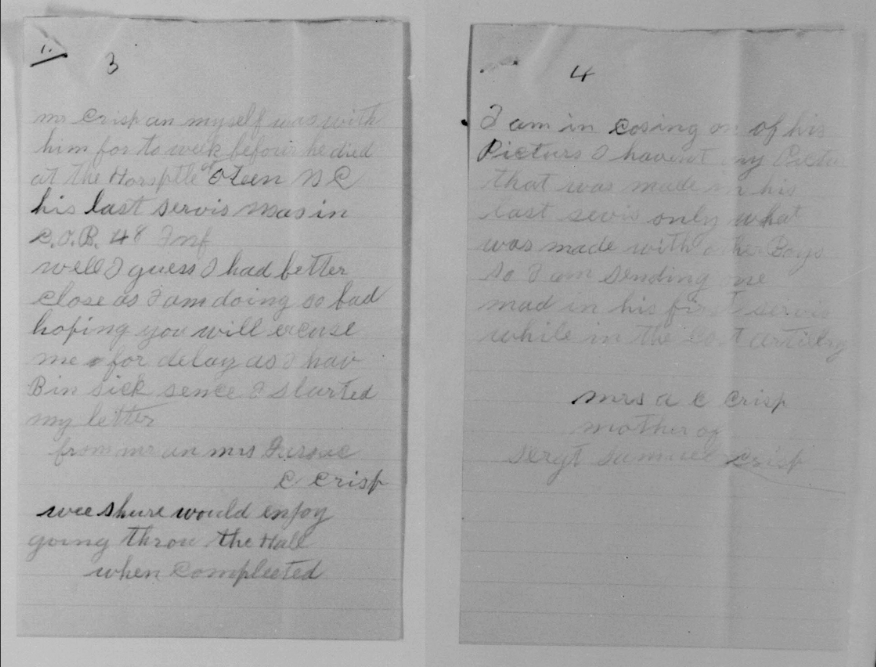 1.
3
mr Crisp an myself was with
him for to week before he died
at the Horsptle Oteen N C
his last servis was in
C.O.B. 48 Inf
well I guess I had better
close as I am doing so bad
hoping you will excuse
me for delay as I hav
Bin sick sence I started
my letter
from mr an mrs
C Crisp
wee shure would enjoy
going throu the Hall
when Compleeted
4
I am in Cosing on of his
Picturs I havent any
that was made in his
last sevis only what
was made with other Boys
so I am sending one
mad in his first servis
while in the Cost artilry
mrs a C Crisp
mother of
Sergt Samuel Crisp